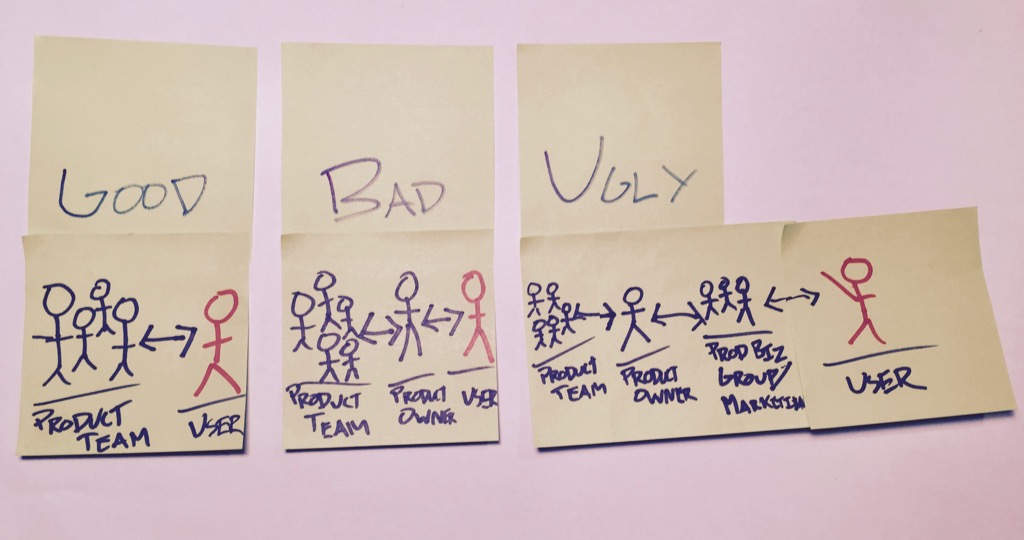 GOOD
PRODUCT
TEAM
USER
BAD
PRODUCT
TEAM
PRODUCT
OWNER
USER
UGLY
PRODUCT
TEAM
PRODUCT
OWNER
PROD BIZ
GROUP/
MARKETING
USER